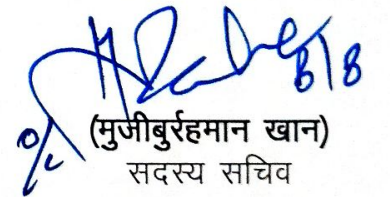 8/8
(मुजीबुर्रहमान खान)
सदस्य सचिव